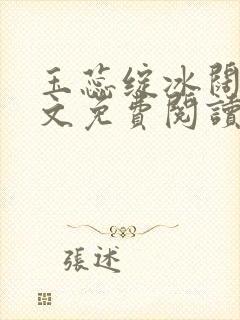 玉蕊綻冰闊
文免費閱讀
張述